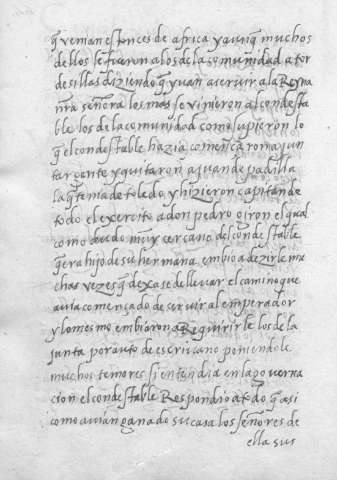 q̃ venian estonces de africa y aunq̃ muchos
dellos se fueron a los de la comunidad a tor
desillas diziendo q̃ yuan a seruir a la Reyna
nr̃a señora los mas se vinieron al condesta
ble los de la comunidad como supieron lo
q̃ el condestable hazia comẽçaron a jun
tar gente y quitaron a juan de padilla
la q̃ tenia de toledo y hizieron capitan de
todo el exercito a don pedro giron el qual
como deudo muy cercano del condestable
q̃ era hijo de su hermana embio a dezirle mu
chas vezes q̃ dexase de lleuar el camino que
auia començado de seruir al emperador
y lo mesmo embiaron a Requirirle los de la
junta por auto de escriuano poniendole
muchos temores si entendia en la gouerna
cion el condestable Respondio a todo q̃ asi
como auian ganado su casa los señores de
ella sus